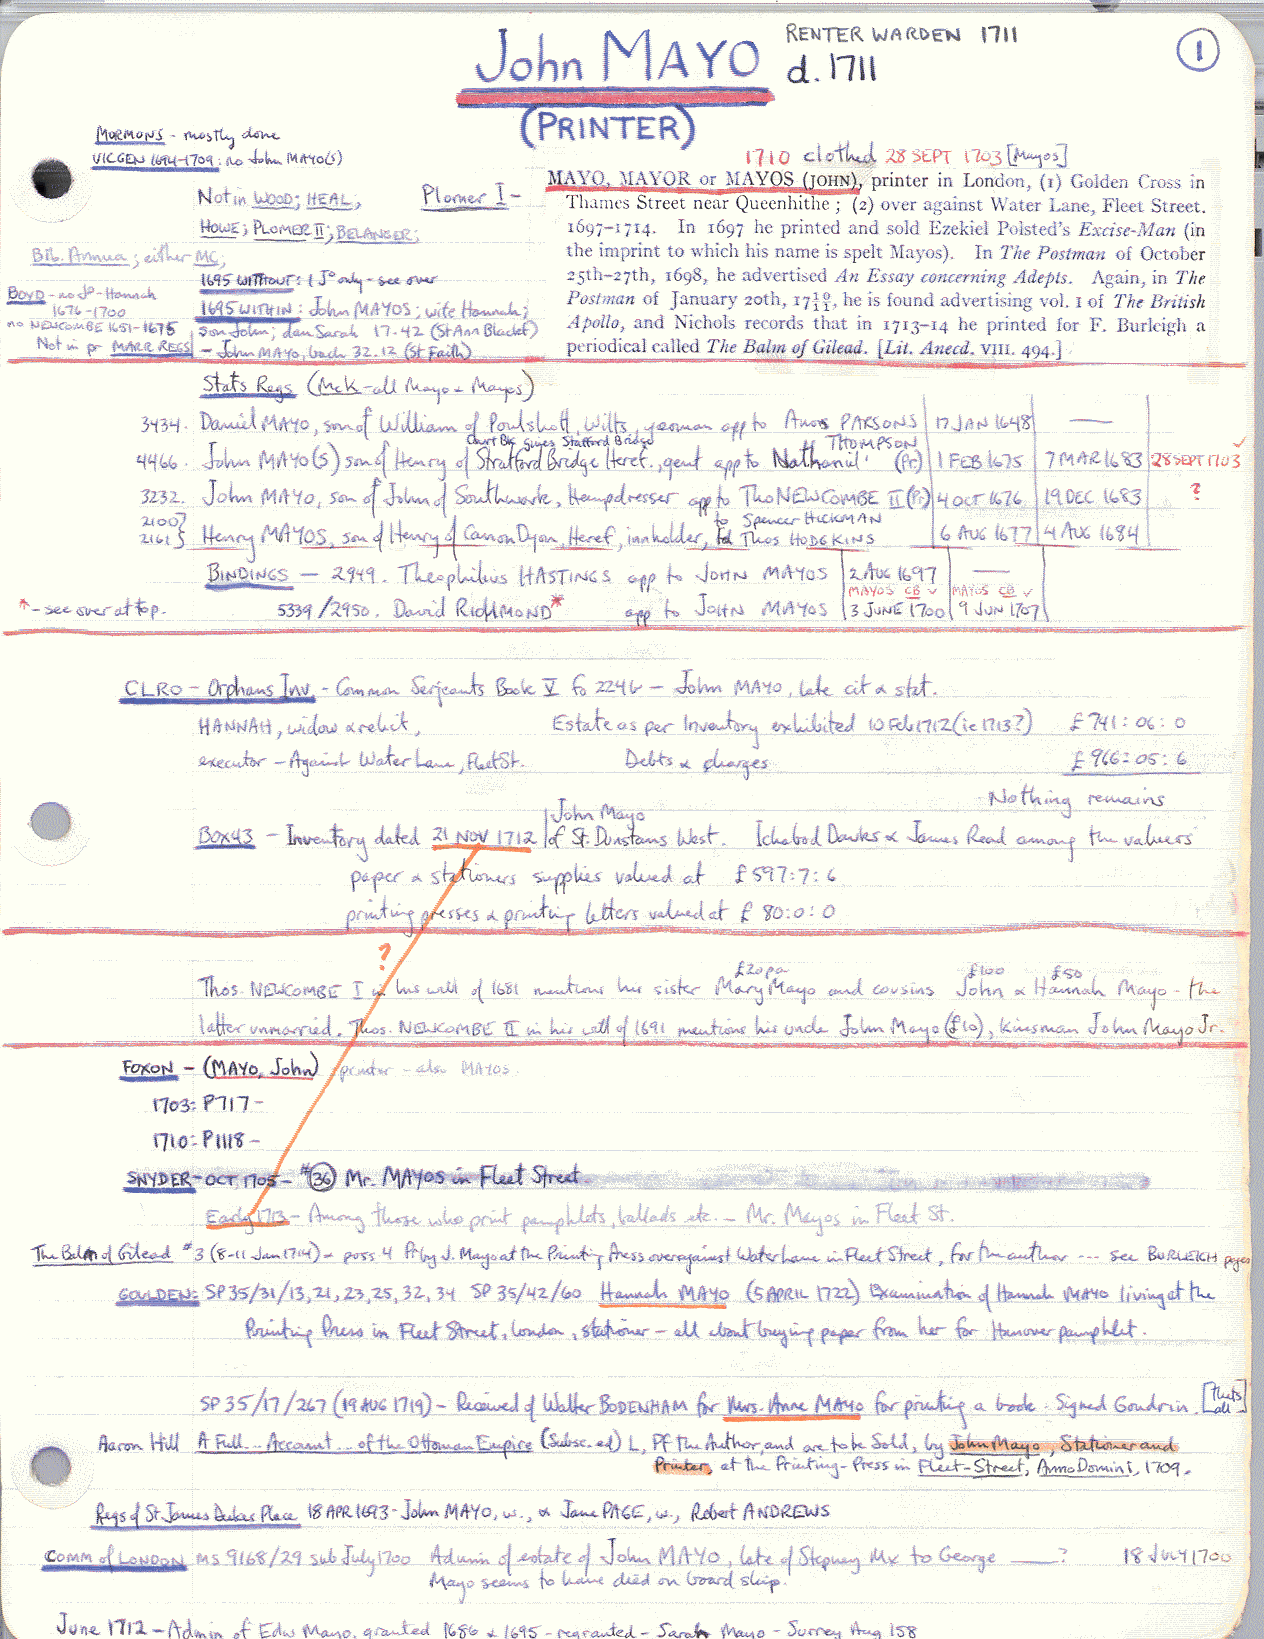 John MAYO
RENTER WARDEN 1711
d. 1711
1
(PRINTER)
MORMONS - mostly done
VICGEN 1694-1709: no John MAYO(S)
1710 clothed 28 SEPT 1703 [Mayos]
Not in WOOD; HEAL,
Plomer I -
HOWE; PLOMER II; BELANGER;
Bib. Annua; either MC;
1695 WITHOUT: 1 Jo only - see over
BOYD - no Jo - Hannah
1676-1700
1695 WITHIN: John MAYOS; wife Hannah;
no NEWCOMBE 1651-1675
son John; dau Sarah 17.42 (St Ann Blackf)
Not in pr MARR REGS
- John MAYO, bach 32.12 (St Faith)
MAYO, MAYOR or MAYOS (JOHN), printer in London, (1) Golden Cross in
Thames Street near Queenhithe; (2) over against Water Lane, Fleet Street.
1697-1714. In 1697 he printed and sold Ezekiel Polsted's Excise-Man (in
the imprint to which his name is spelt Mayos). In The Postman of October
25th-27th, 1698, he advertised An Essay concerning Adepts. Again, in The
Postman of January 20th, 17 10/11, he is found advertising vol. 1 of The British
Apollo, and Nichols records that in 1713-14 he printed for F. Burleigh a
periodical called The Balm of Gilead. [Lit. Anecd. VIII. 494.]
Stat's Regs (McK - all Mayo & Mayos)
3434. Daniel MAYO, son of William of Poulshott, Wilts, yeoman app to Amos PARSONS 17 JAN 1648 —
Court Bk gives Stafford Bridge THOMPSON
4466. John MAYO(S) son of Henry of Stratford Bridge Heref., gent app to Nathaniel (Pr) 1 FEB 1675 7 MAR 1683 28 SEPT 1703 ✓
3232. John MAYO, son of John of Southwark, Hempdresser app to Tho NEWCOMBE II (Pr) 4 OCT 1676 19 DEC 1683 ?
2100 to Spencer HICKMAN
2161 } Henry MAYOS, son of Henry of Cannon Dyon, Heref, innholder, to Thos HODGKINS 6 AUG 1677 4 AUG 1684
BINDINGS — 2949. Theophilus HASTINGS app to JOHN MAYOS 2 AUG 1697 —
MAYOS CB ✓ MAYOS CB ✓
* - see over at top. 5339/2950. David RICHMOND* app to JOHN MAYOS 3 JUNE 1700 9 JUN 1707
CLRO - Orphans Inv - Common Serjeants Book V fo 224b - John MAYO, late cit & stat.
HANNAH, widow & relict, Estate as per Inventory exhibited 10 Feb 1712 (ie 1713?) £741:06:0
executor - Against Water Lane, Fleet St. Debts & charges £966:05:6
Nothing remains
John Mayo
BOX 43 - Inventory dated 21 NOV 1712 of St. Dunstans West. Ichabod Dawks & James Read among the valuers
paper & stationers supplies valued at £597:7:6
printing presses & printing letters valued at £80:0:0
?
£20 pa £100 £50
Thos. NEWCOMBE I in his will of 1681 mentions his sister Mary Mayo and cousins John & Hannah Mayo - the
latter unmarried. Thos. NEWCOMBE II in his will of 1691 mentions his uncle John Mayo (£10), kinsman John Mayo Jr.
FOXON - (MAYO, John) printer - also MAYOS.
1703: P717 -
1710: P1118 -
SNYDER - OCT 1705 - #36 Mr. MAYOS in Fleet Street.
Early 1713 - Among those who print pamphlets, ballads etc. - Mr. Mayos in Fleet St.
The Balm of Gilead #3 (8-11 Jan 1714) - poss 4 Pr by J. Mayo at the Printing Press over against Water lane in Fleet Street, for the author --- see BURLEIGH pages
GOULDEN: SP 35/31/13, 21, 23, 25, 32, 34 SP 35/42/60 Hannah MAYO (5 APRIL 1722) Examination of Hannah MAYO living at the
Printing Press in Fleet Street, London, stationer - all about buying paper from her for Hanover pamphlet.
SP 35/17/267 (19 AUG 1719) - Received of Walter BODENHAM for Mrs. Anne MAYO for printing a book - Signed Goudrin. [that's all]
Aaron Hill A Full... Account... of the Ottoman Empire (Subsc. ed) L, Pf the Author, and are to be Sold, by John Mayo, Stationer and
Printer, at the Printing-Press in Fleet-Street, Anno Domini, 1709.
Regs of St James Dukes Place 18 APR 1693 - John MAYO, w., & Jane PAGE, w., Robert ANDREWS
COMM of LONDON MS 9168/29 sub July 1700 Admin of estate of John MAYO, late of Stepney Mx to George ——? 18 JULY 1700
Mayo seems to have died on board ship.
June 1712 - Admin of Edw Mayo, granted 1686 & 1695 - regranted - Sarah Mayo - Surrey Aug 158